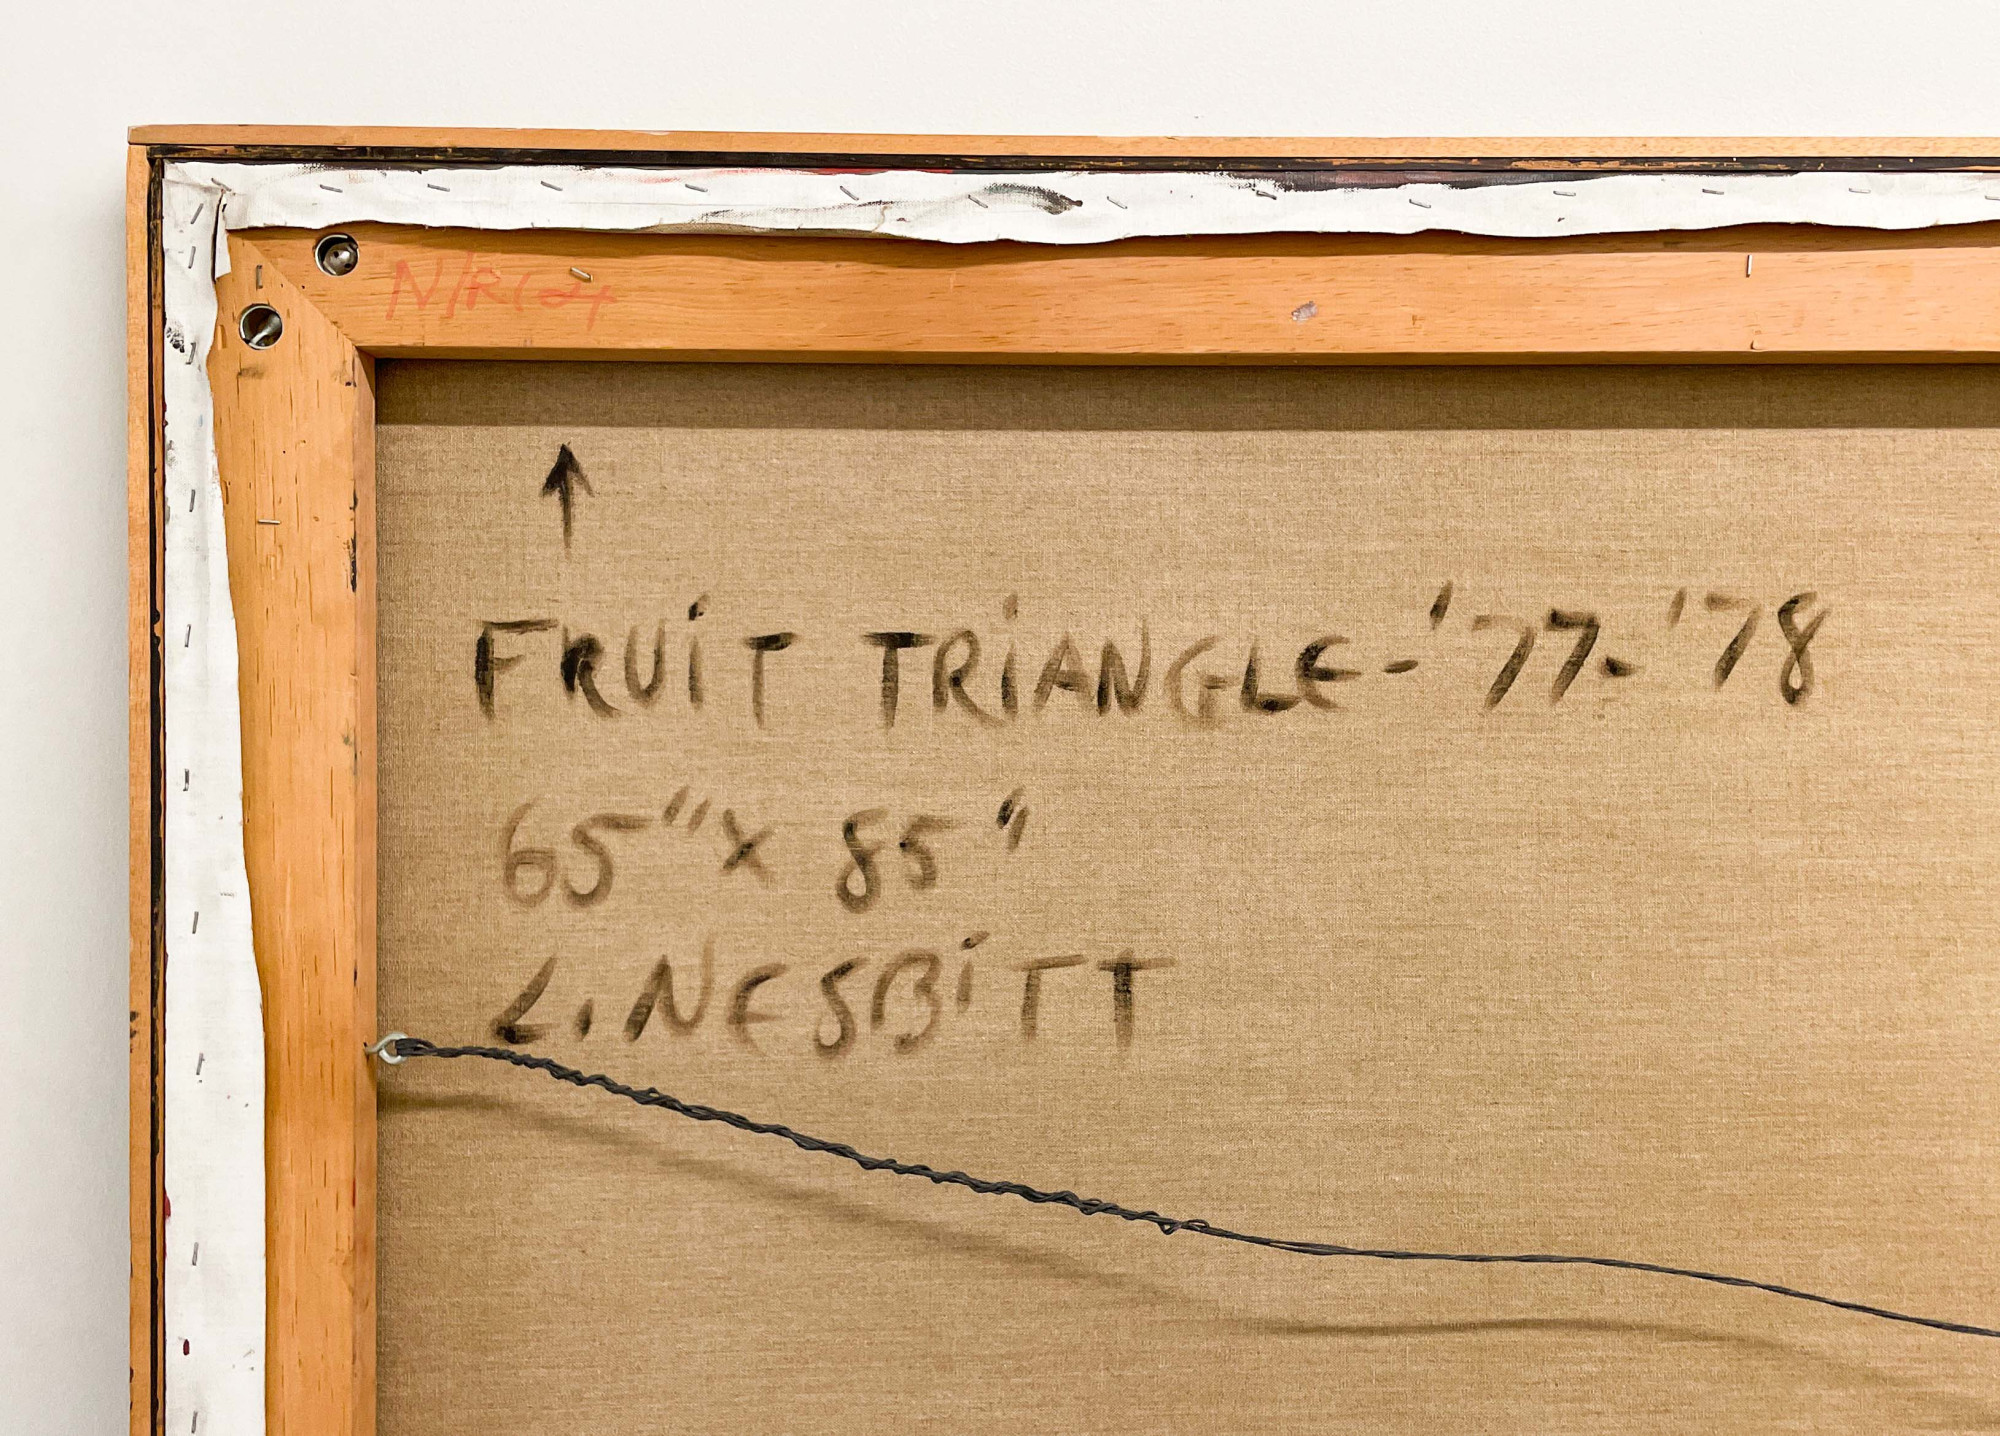 FRUiT TRiANGLE-'77-'78
65"x 85"
L. NESBiTT